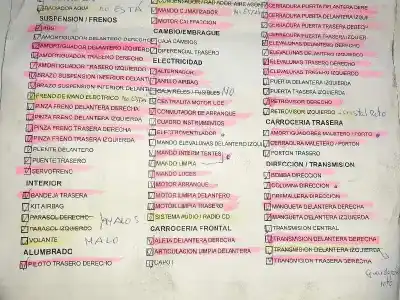 TRAVIESA AGUA No ESTA
SUSPENSIÓN / FRENOS
AMORTIGUADOR DELANTERO DERECHO
AMORTIGUADOR DELANTERO IZQUIERDO
AMORTIGUADOR TRASERO DERECHO
AMORTIGUADOR TRASERO IZQUIERDO
BRAZO SUSPENSION INFERIOR DELANT
BRAZO SUSPENSION INFERIOR DELANT
FRENO DE MANO ELECTRICO No esta
PINZA FRENO DELANTERA DERECHA
PINZA FRENO DELANTERA IZQUIERDA
PINZA FRENO TRASERA DERECHA
PINZA FRENO TRASERA IZQUIERDA
PUENTE DELANTERO
PUENTE TRASERO
SERVOFRENO
INTERIOR
BANDEJA TRASERA
KIT AIRBAG
PARASOL DERECHO MALOS
PARASOL IZQUIERDO
VOLANTE MALO
ALUMBRADO
PILOTO TRASERO DERECHO
MANDO CLIMATIZADOR
MOTOR CALEFACCION
CAMBIO/EMBRAGUE
CAJA CAMBIOS
DIFERENCIAL TRASERO
ELECTRICIDAD
ALTERNADOR
ANILLO AIRBAG
CAJA RELES / FUSIBLES NO
CENTRALITA MOTOR UCE
CONMUTADOR DE ARRANQUE
CUADRO INSTRUMENTOS
ELECTROVENTILADOR
MANDO ELEVALUNAS DELANTERO IZQUI
MANDO INTERMITENTES
MANDO LIMPIA
MANDO LUCES
MOTOR ARRANQUE
MOTOR LIMPIA DELANTERO
MOTOR LIMPIA TRASERO
SISTEMA AUDIO / RADIO CD
CARROCERÍA FRONTAL
ALETA DELANTERA DERECHA
ARTICULACION LIMPIA DELANTERA
CAPOT
CERRADURA PUERTA DELANTERA IZQUIER
CERRADURA PUERTA TRASERA DERECHA
CERRADURA PUERTA TRASERA IZQUIERDA
ELEVALUNAS DELANTERO DERECHO
ELEVALUNAS DELANTERO IZQUIERDO
ELEVALUNAS TRASERO DERECHO
ELEVALUNAS TRASERO IZQUIERDO
PUERTA DELANTERA IZQUIERDA
PUERTA TRASERA IZQUIERDA
RETROVISOR DERECHO
RETROVISOR IZQUIERDO
CARROCERÍA TRASERA
AMORTIGUADORES MALETERO / PORTO
CERRADURA MALETERO / PORTON
PORTON TRASERO
DIRECCION / TRANSMISION
BOMBA DIRECCION
COLUMNA DIRECCION
CREMALLERA DIRECCION
MANGUETA DELANTERA DERECHA
MANGUETA DELANTERA IZQUIERDA
TRANSMISION CENTRAL
TRANSMISION DELANTERA DERECHA
TRANSMISION DELANTERA IZQUIERDA
TRANSMISION TRASERA DERECHA